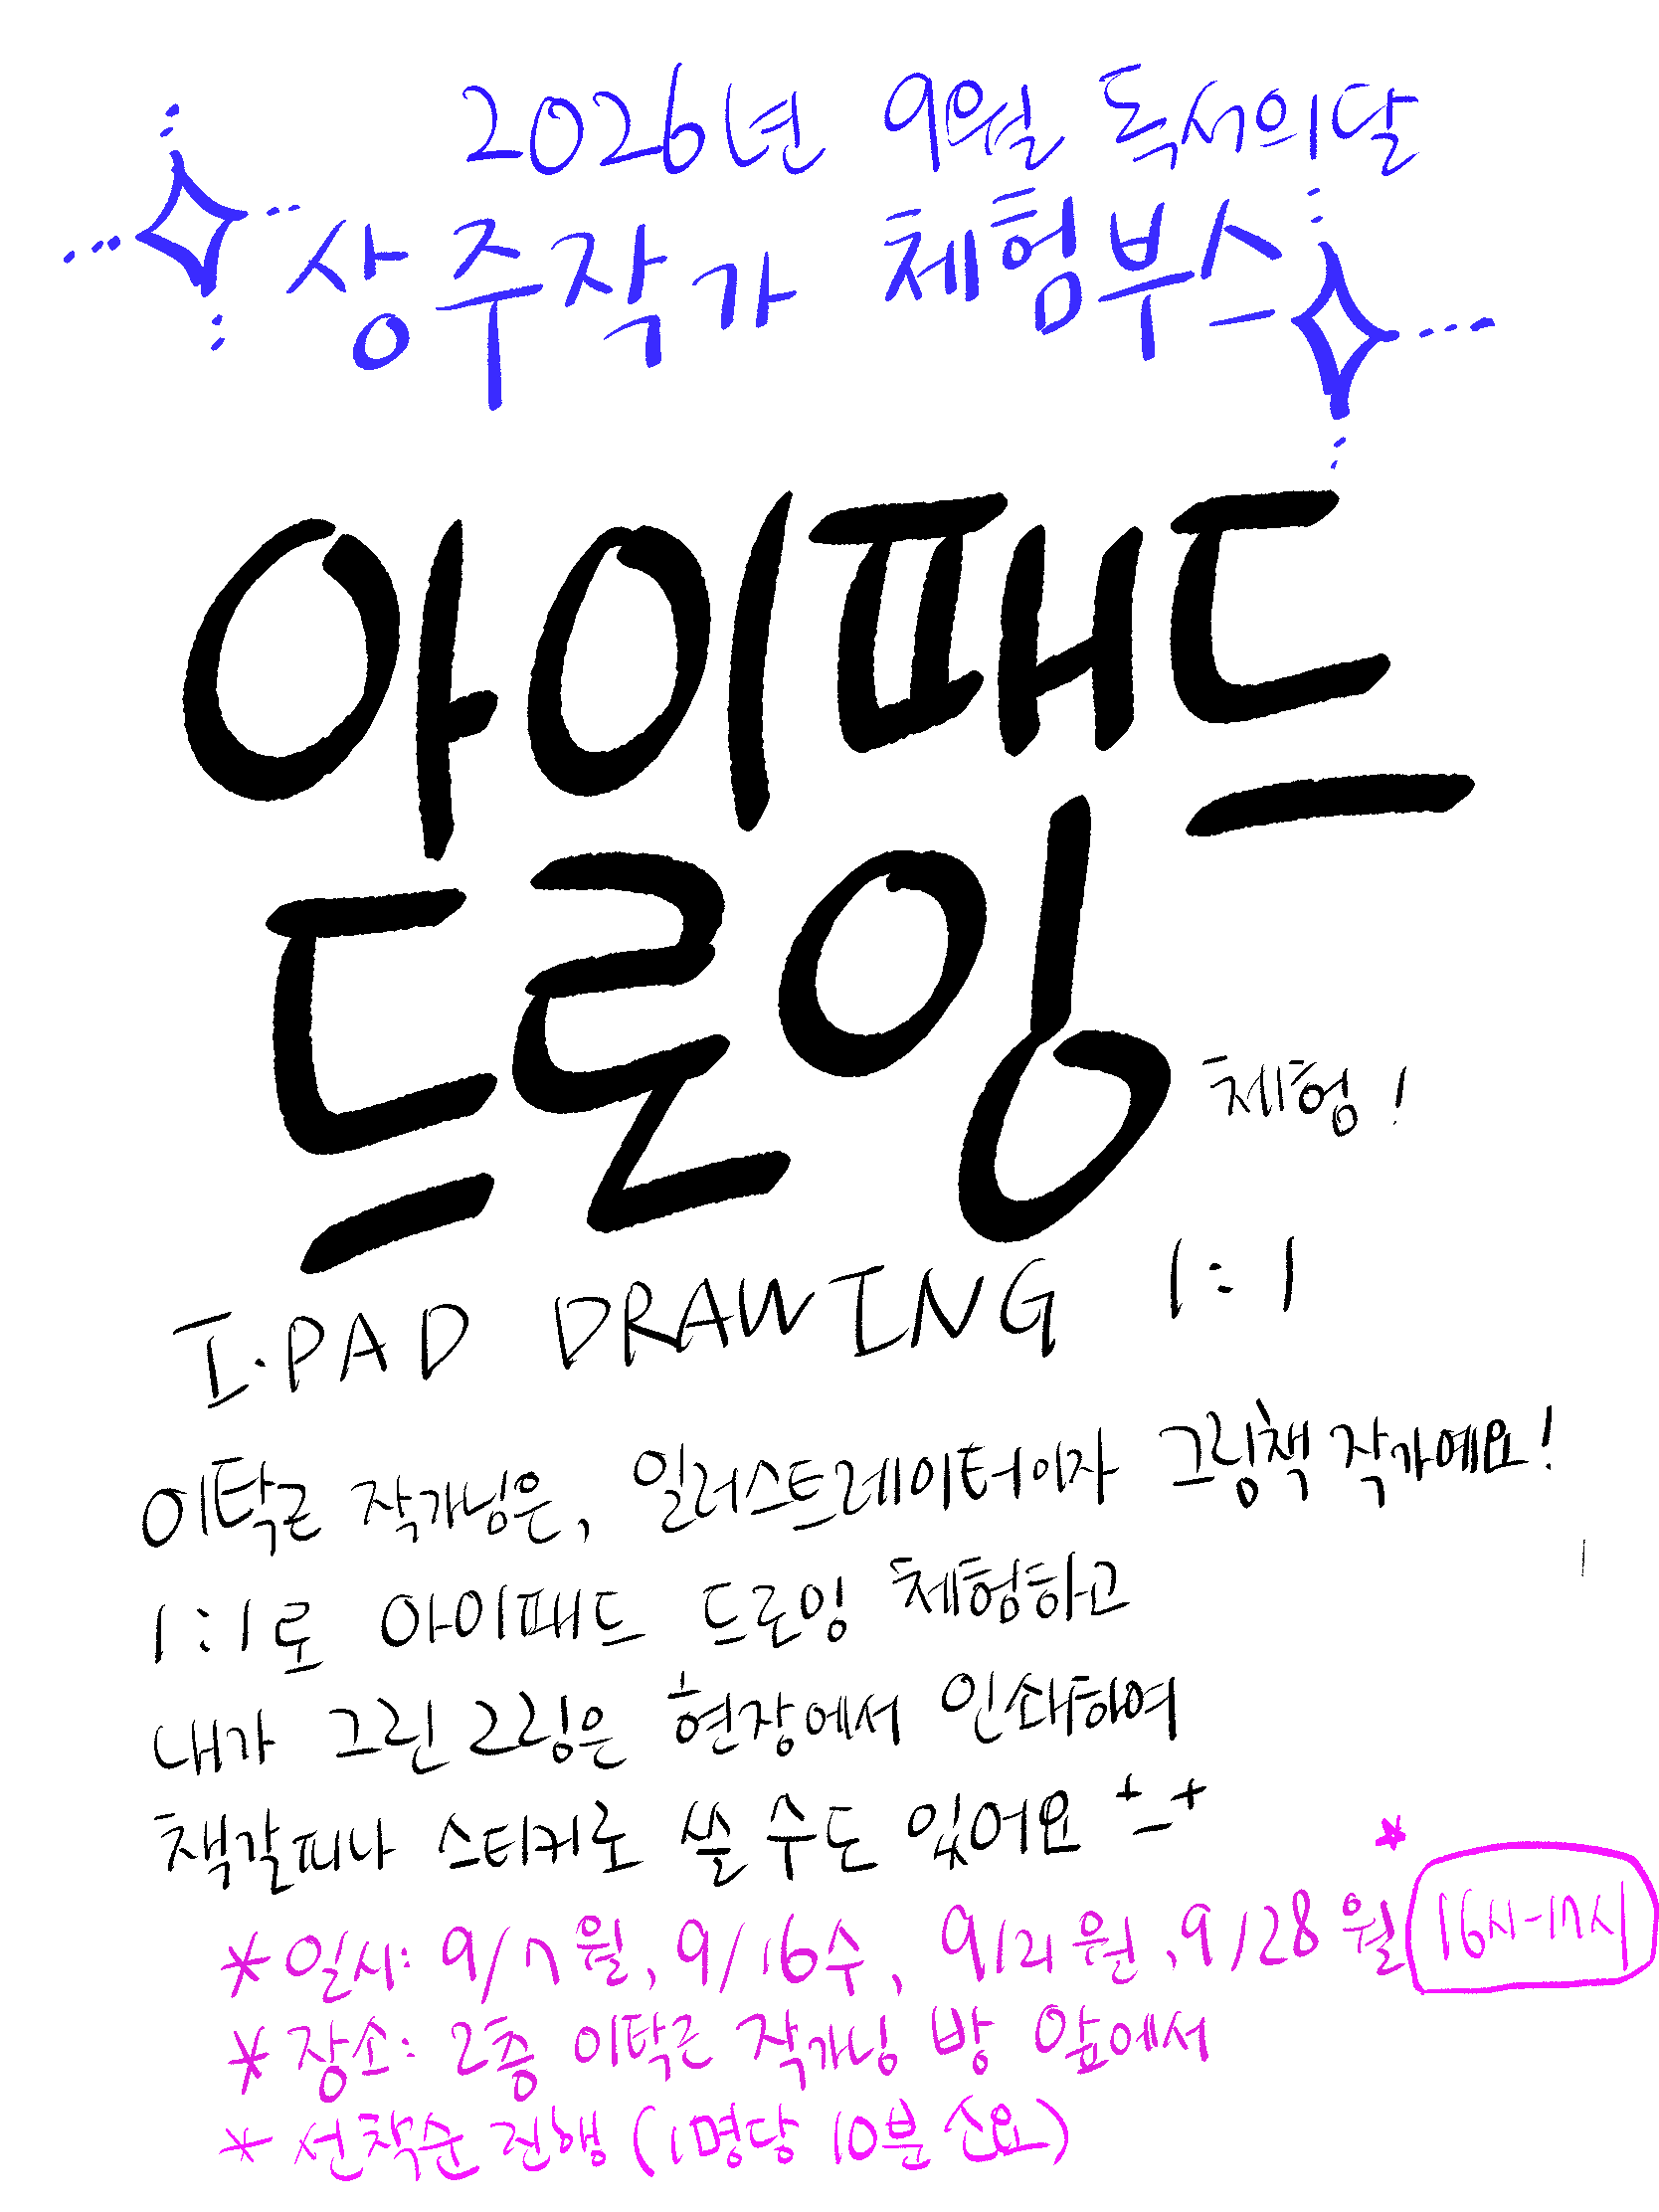 2026년 9월 독서의달
상주작가 체험부스
아이패드
드로잉 체험!
I.PAD DRAWING 1:1
이탁근 작가님은, 일러스트레이터이자 그림책 작가예요!
1:1로 아이패드 드로잉 체험하고
내가 그린 그림은 현장에서 인쇄하여
책갈피나 스티커로 쓸 수도 있어요 +_+
*일시: 9/7월, 9/16수, 9/21월, 9/28월 16시-17시
*장소: 2층 이탁근 작가님 방 앞에서
*선착순 진행 (1명당 10분 소요)